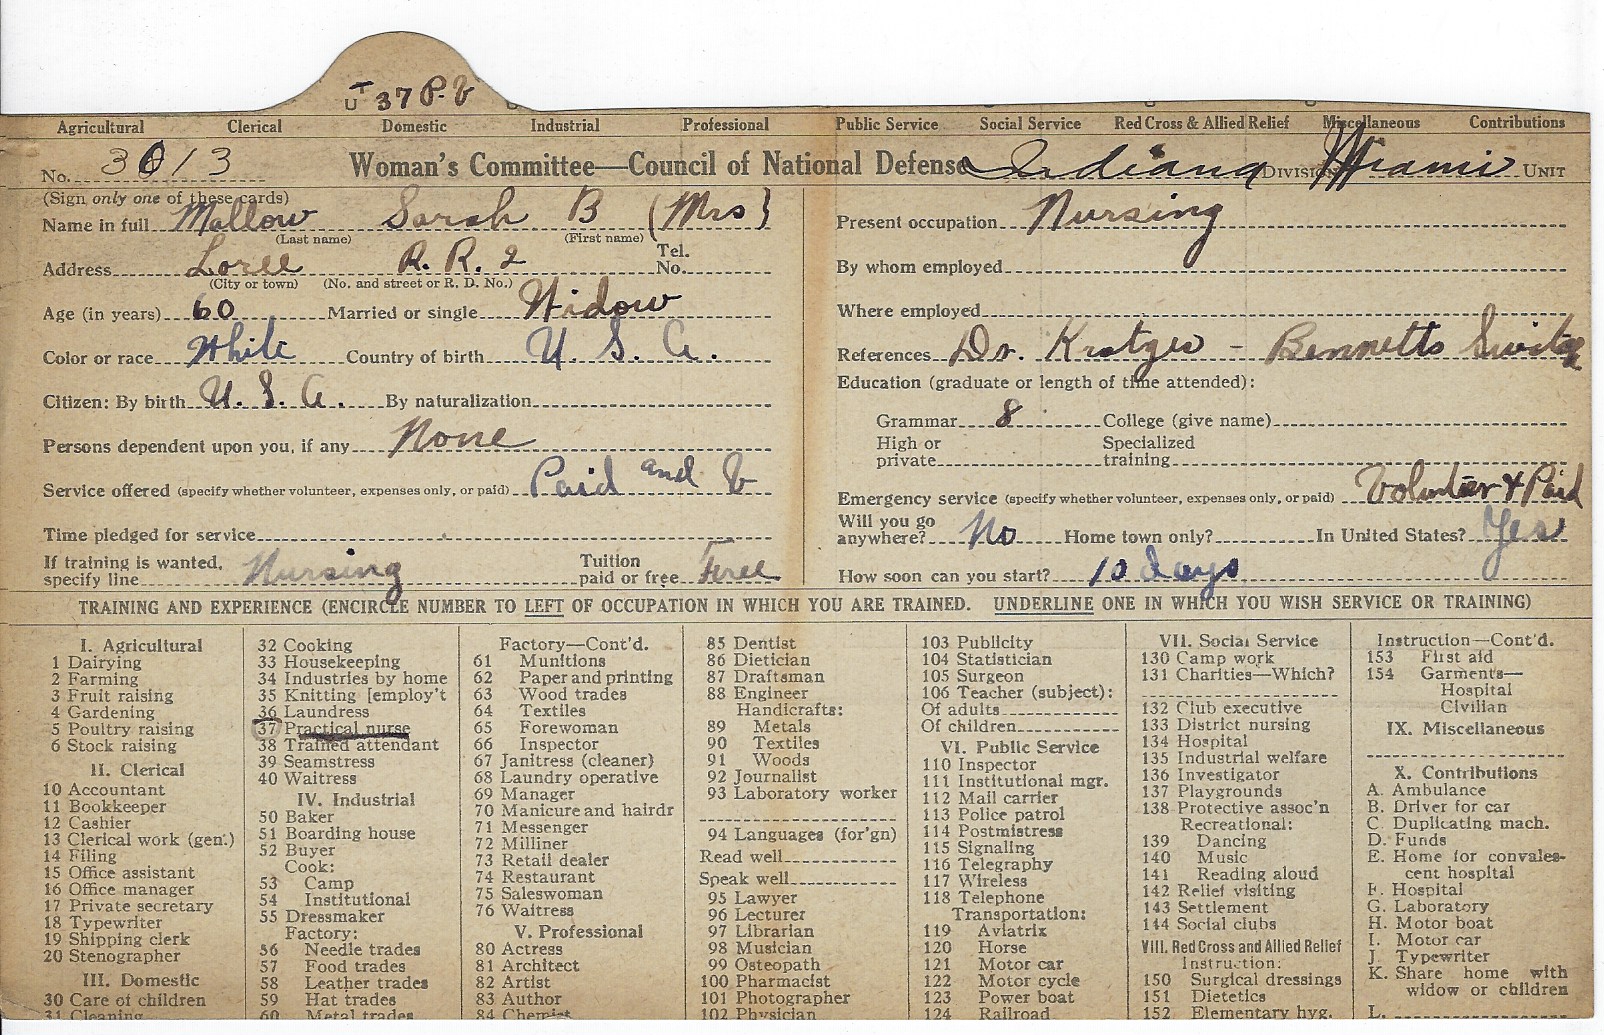 U T 37 P.V
Agricultural Clerical Domestic Industrial Professional Public Service Social Service Red Cross & Allied Relief Miscellaneous Contributions
No. 3013 Woman's Committee—Council of National Defense Indiana DIVISION Miami UNIT
(Sign only one of these cards)
Name in full Mallow Sarah B (Mrs)
(Last name) (First name)
Address Loree R. R. 2 Tel. No.
(City or town) (No. and street or R. D. No.)
Age (in years) 60 Married or single Widow
Color or race White Country of birth U. S. A.
Citizen: By birth U. S. A. By naturalization
Persons dependent upon you, if any None
Service offered (specify whether volunteer, expenses only, or paid) Paid and V
Time pledged for service
If training is wanted, specify line Nursing Tuition paid or free Free
Present occupation Nursing
By whom employed
Where employed
References Dr. - Bennetts
Education (graduate or length of time attended):
Grammar 8 College (give name)
High or private Specialized training
Emergency service (specify whether volunteer, expenses only, or paid) Volunteer & Paid
Will you go anywhere? No Home town only? In United States? Yes
How soon can you start? 10 days
TRAINING AND EXPERIENCE (ENCIRCLE NUMBER TO LEFT OF OCCUPATION IN WHICH YOU ARE TRAINED. UNDERLINE ONE IN WHICH YOU WISH SERVICE OR TRAINING)
I. Agricultural
1 Dairying
2 Farming
3 Fruit raising
4 Gardening
5 Poultry raising
6 Stock raising
II. Clerical
10 Accountant
11 Bookkeeper
12 Cashier
13 Clerical work (gen.)
14 Filing
15 Office assistant
16 Office manager
17 Private secretary
18 Typewriter
19 Shipping clerk
20 Stenographer
III. Domestic
30 Care of children
31 Cleaning
32 Cooking
33 Housekeeping
34 Industries by home
35 Knitting [employ't
36 Laundress
37 Practical nurse
38 Trained attendant
39 Seamstress
40 Waitress
IV. Industrial
50 Baker
51 Boarding house
52 Buyer
Cook:
53 Camp
54 Institutional
55 Dressmaker
Factory:
56 Needle trades
57 Food trades
58 Leather trades
59 Hat trades
60 Metal trades
Factory—Cont'd.
61 Munitions
62 Paper and printing
63 Wood trades
64 Textiles
65 Forewoman
66 Inspector
67 Janitress (cleaner)
68 Laundry operative
69 Manager
70 Manicure and hairdr
71 Messenger
72 Milliner
73 Retail dealer
74 Restaurant
75 Saleswoman
76 Waitress
V. Professional
80 Actress
81 Architect
82 Artist
83 Author
84 Chemist
85 Dentist
86 Dietician
87 Draftsman
88 Engineer
Handicrafts:
89 Metals
90 Textiles
91 Woods
92 Journalist
93 Laboratory worker
94 Languages (for'gn)
Read well
Speak well
95 Lawyer
96 Lecturer
97 Librarian
98 Musician
99 Osteopath
100 Pharmacist
101 Photographer
102 Physician
103 Publicity
104 Statistician
105 Surgeon
106 Teacher (subject):
Of adults
Of children
VI. Public Service
110 Inspector
111 Institutional mgr.
112 Mail carrier
113 Police patrol
114 Postmistress
115 Signaling
116 Telegraphy
117 Wireless
118 Telephone
Transportation:
119 Aviatrix
120 Horse
121 Motor car
122 Motor cycle
123 Power boat
124 Railroad
VII. Social Service
130 Camp work
131 Charities—Which?
132 Club executive
133 District nursing
134 Hospital
135 Industrial welfare
136 Investigator
137 Playgrounds
138 Protective assoc'n
Recreational:
139 Dancing
140 Music
141 Reading aloud
142 Relief visiting
143 Settlement
144 Social clubs
VIII. Red Cross and Allied Relief
Instruction:
150 Surgical dressings
151 Dietetics
152 Elementary hyg.
Instruction—Cont'd.
153 First aid
154 Garments—
Hospital
Civilian
IX. Miscellaneous
X. Contributions
A. Ambulance
B. Driver for car
C. Duplicating mach.
D. Funds
E. Home for convales-
cent hospital
F. Hospital
G. Laboratory
H. Motor boat
I. Motor car
J. Typewriter
K. Share home with
widow or children
L.